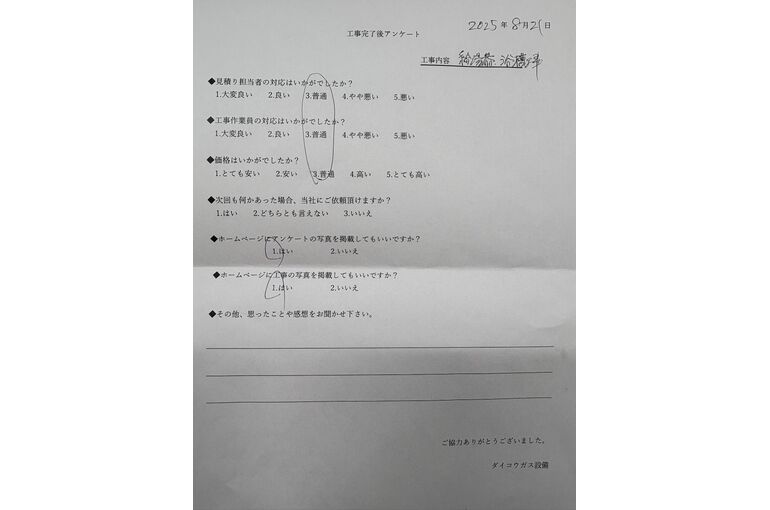 2025年8月21日
工事完了後アンケート
工事内容 給湯器 浴槽
◆見積り担当者の対応はいかがでしたか？
1.大変良い 2.良い 3.普通 4.やや悪い 5.悪い
◆工事作業員の対応はいかがでしたか？
1.大変良い 2.良い 3.普通 4.やや悪い 5.悪い
◆価格はいかがでしたか？
1.とても安い 2.安い 3.普通 4.高い 5.とても高い
◆次回も何かあった場合、当社にご依頼頂けますか？
1.はい 2.どちらとも言えない 3.いいえ
◆ホームページにアンケートの写真を掲載してもいいですか？
1.はい 2.いいえ
◆ホームページに工事の写真を掲載してもいいですか？
1.はい 2.いいえ
◆その他、思ったことや感想をお聞かせ下さい。
ご協力ありがとうございました。
ダイコウガス設備